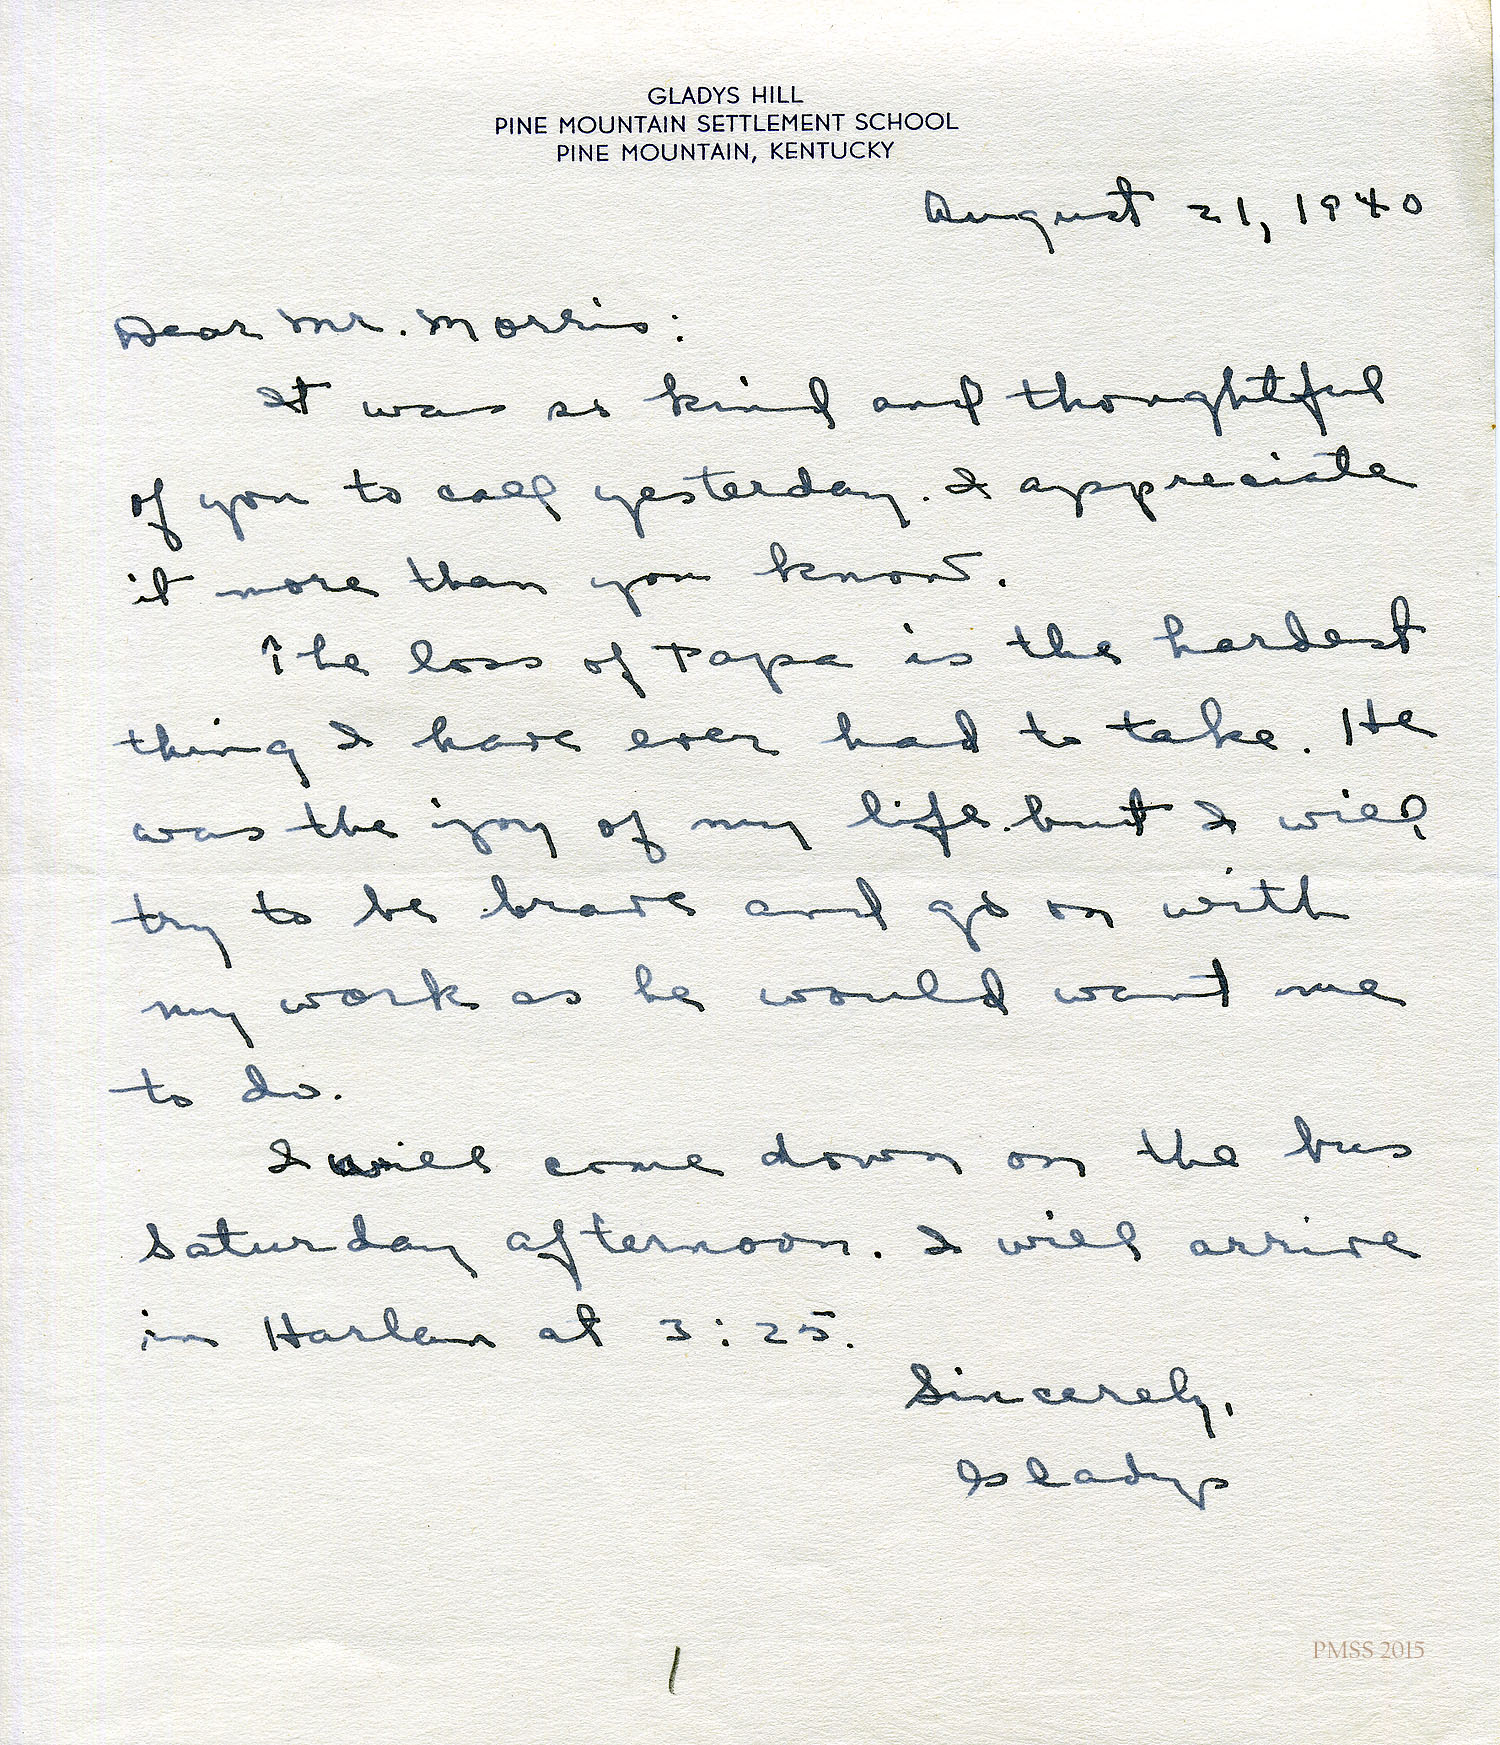 GLADYS HILL
PINE MOUNTAIN SETTLEMENT SCHOOL
PINE MOUNTAIN, KENTUCKY
August 21, 1940
Dear Mr. Morris:
It was so kind and thoughtful
of you to call yesterday. I appreciate
it more than you know.
The loss of Papa is the hardest
thing I have ever had to take. He
was the joy of my life. but I will
try to be brave and go on with
my work as he would want me
to do.
I will come down on the bus
Saturday afternoon. I will arrive
in Harlan at 3:25.
Sincerely,
Gladys
1
PMSS 2015